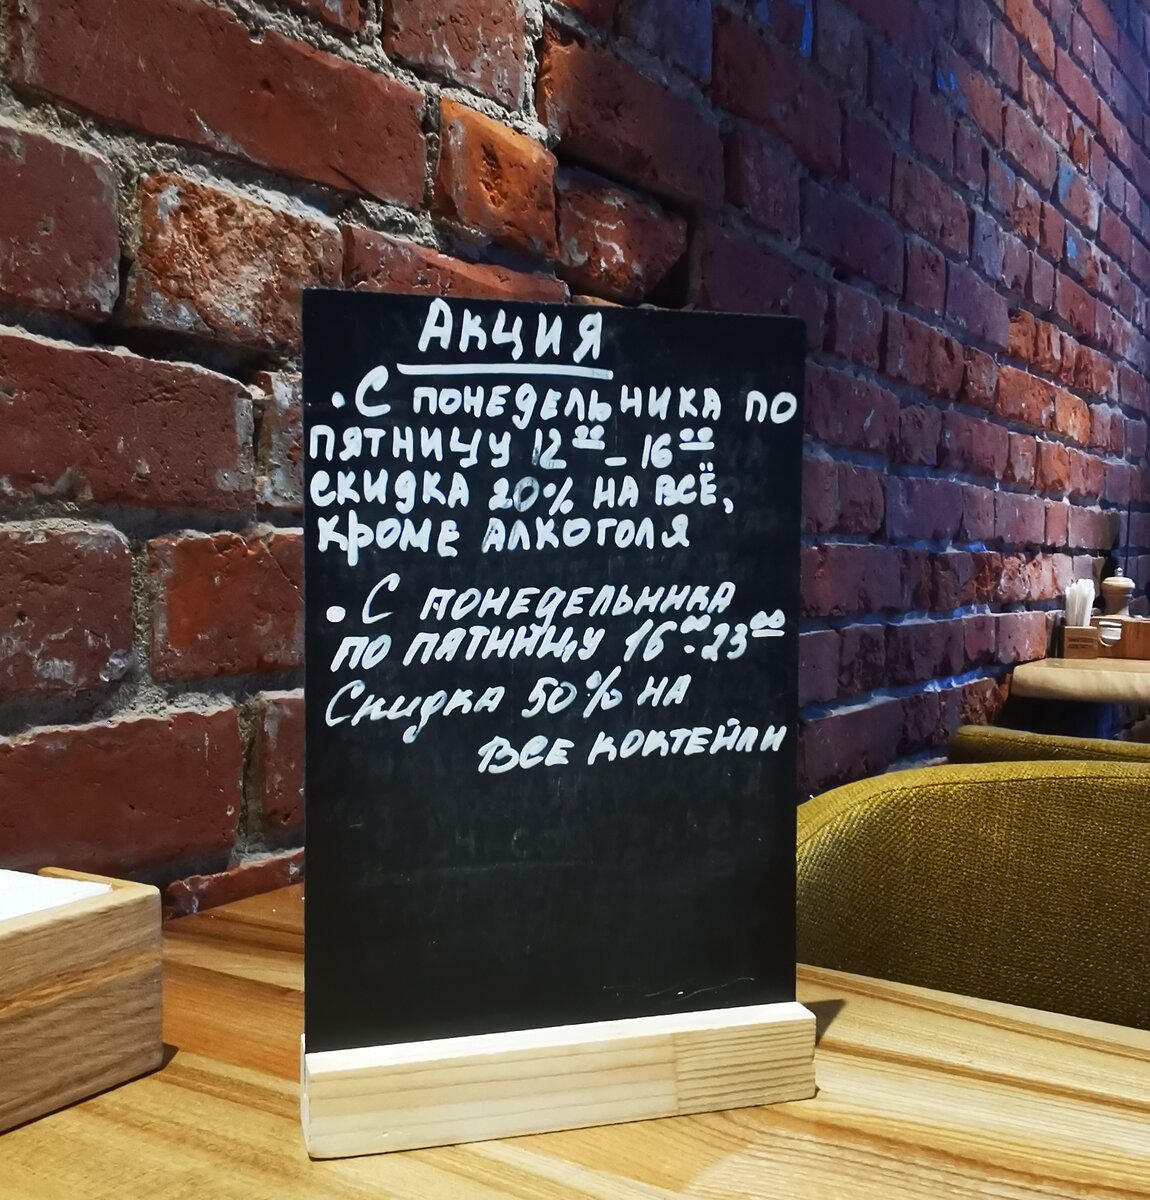 Акция
• С понедельника по
пятницу 12⁰⁰ – 16⁰⁰
скидка 20% на всё,
кроме алкоголя
• С понедельника
по пятницу 16⁰⁰-23⁰⁰
Скидка 50% на
все коктейли